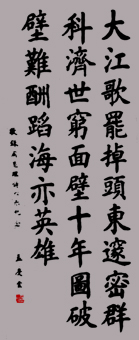 大江歌罷掉頭東邃密群
科濟世窮面壁十年圖破
壁難酬蹈海亦英雄